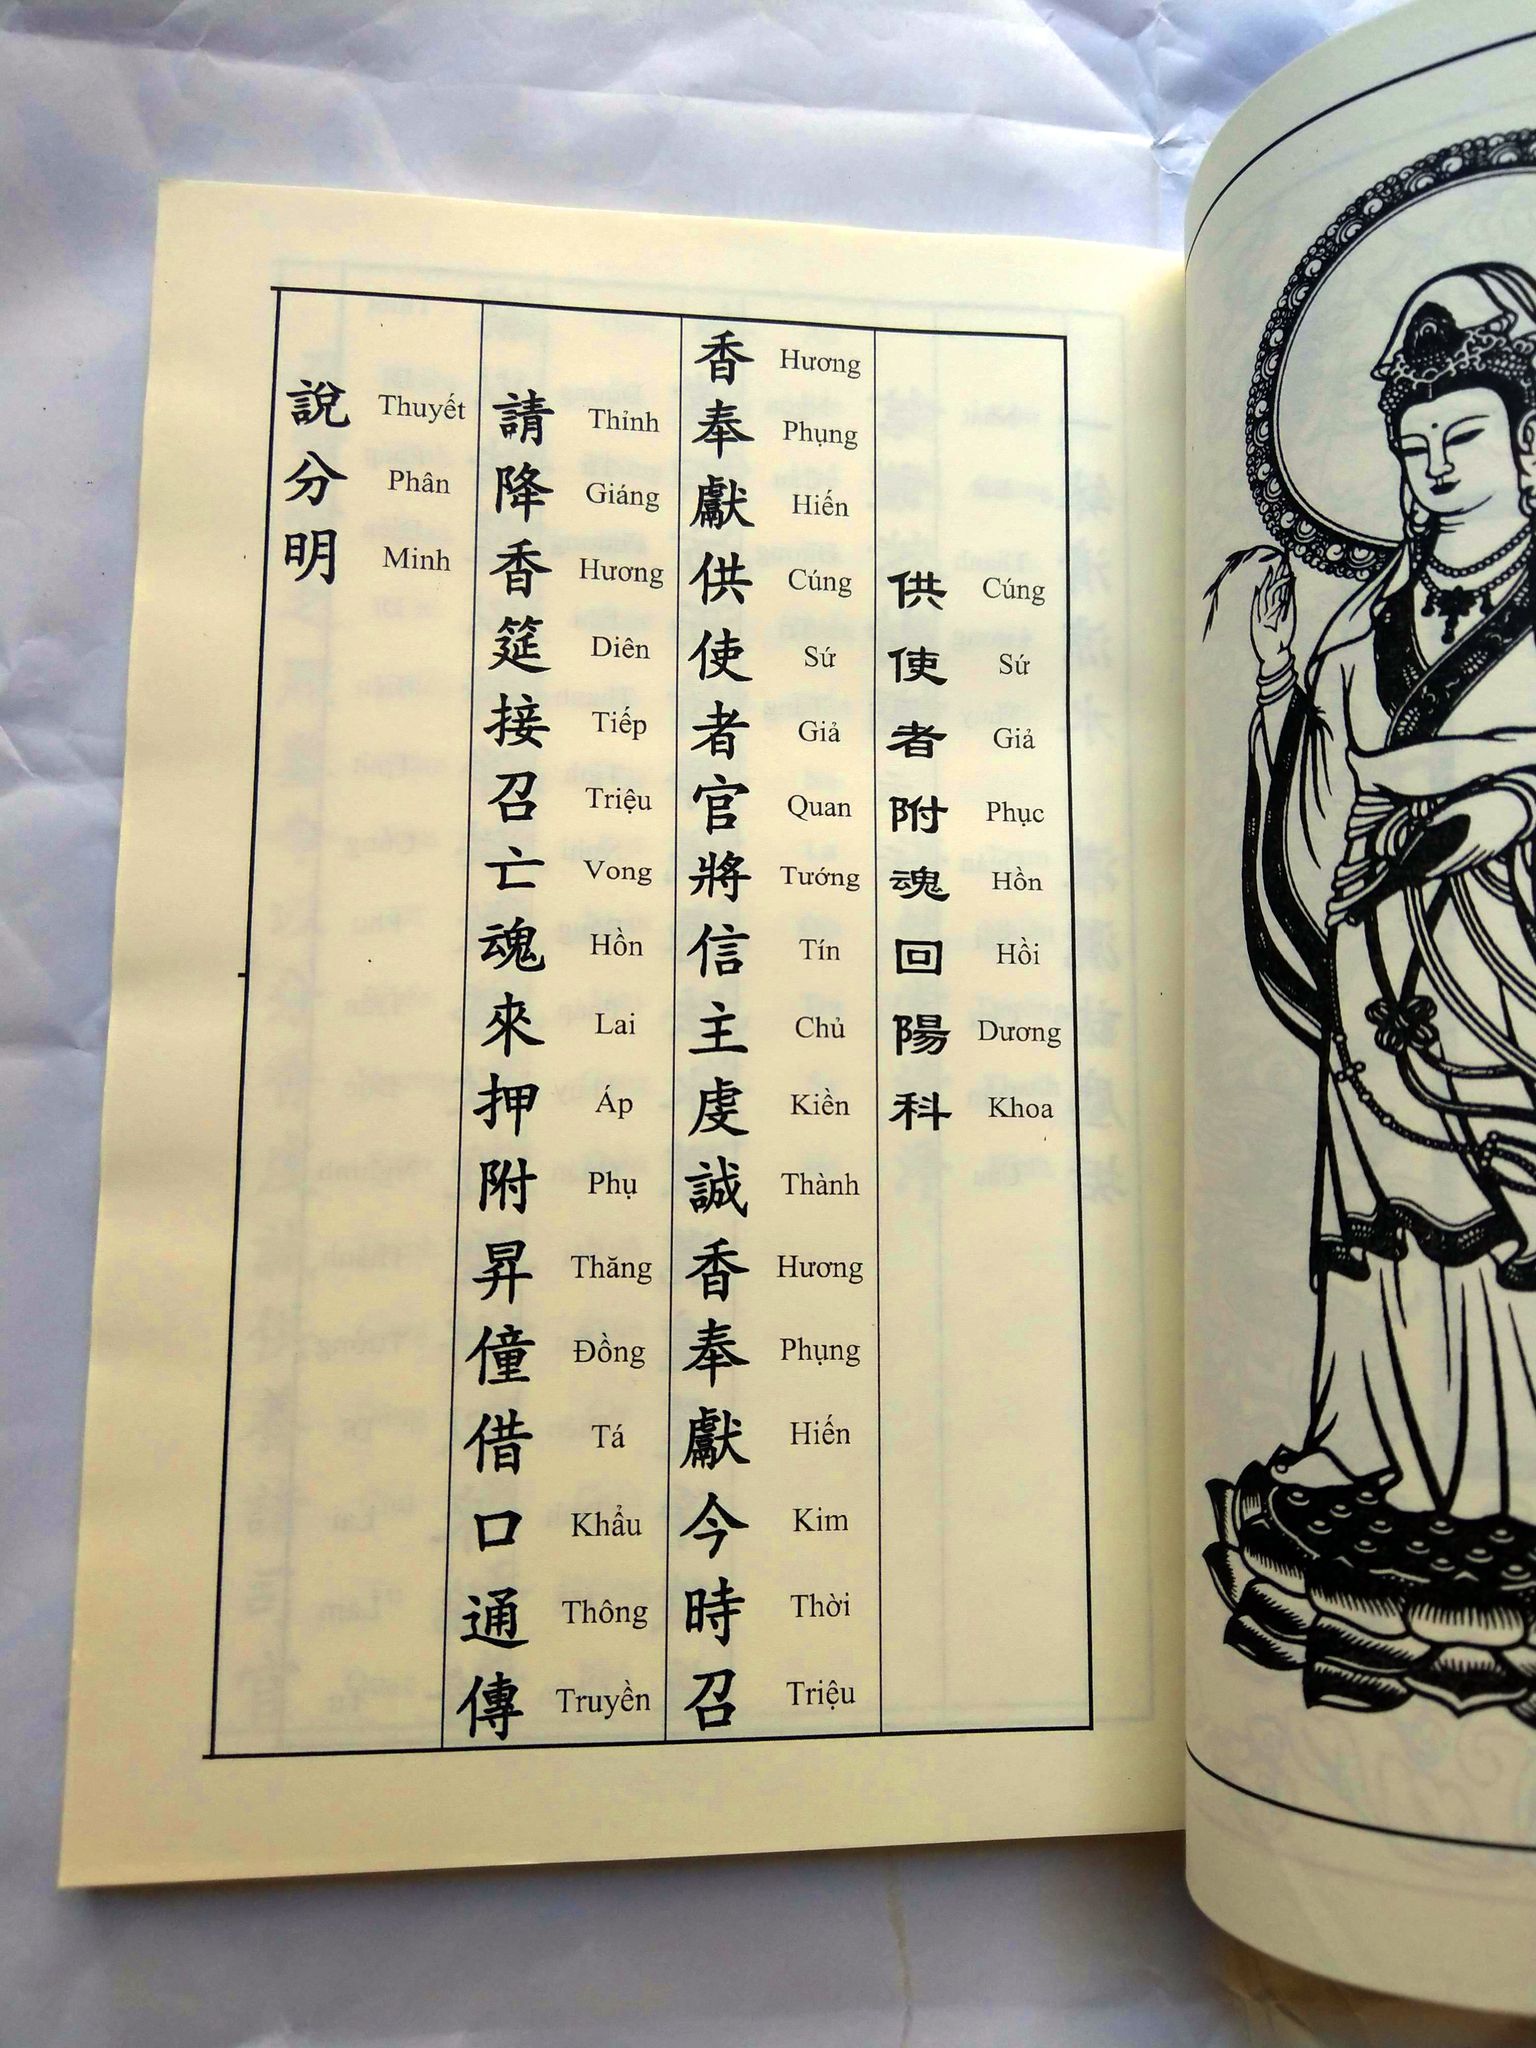 供使者附魂回陽科
Cúng Sứ Giả Phục Hồn Hồi Dương Khoa
香奉獻供使者官將信主虔誠香奉獻今時召
Hương Phụng Hiến Cúng Sứ Giả Quan Tướng Tín Chủ Kiền Thành Hương Phụng Hiến Kim Thời Triệu
請降香筵接召亡魂來押附昇僮借口通傳
Thỉnh Giáng Hương Diên Tiếp Triệu Vong Hồn Lai Áp Phụ Thăng Đồng Tá Khẩu Thông Truyền
說分明
Thuyết Phân Minh